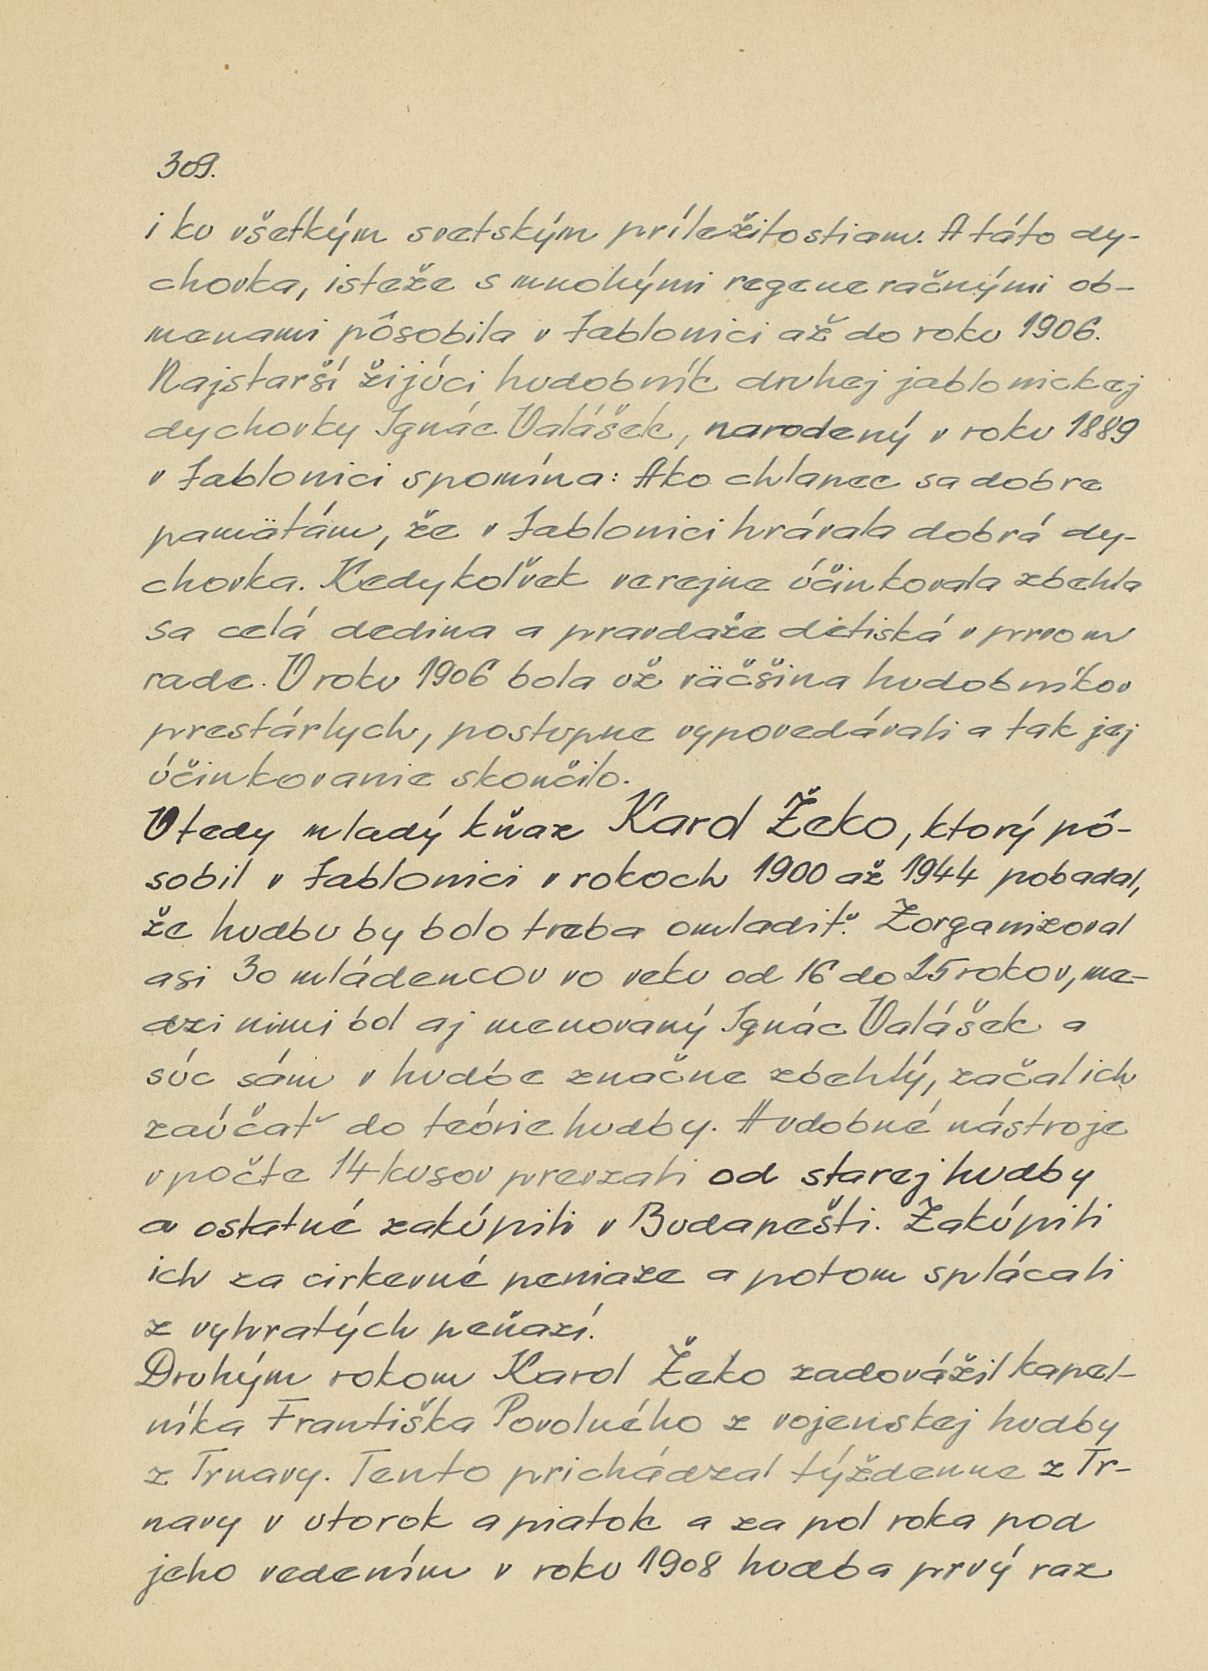 309.
i ku všetkým svetským príležitostiam. A táto dy-
chovka, isteže s mnohými regeneračnými ob-
menami pôsobila v Jablonici až do roku 1906.
Najstarší žijúci hudobník druhej jablonickej
dychovky Ignác Valášek, narodený v roku 1889
v Jablonici spomína: Ako chlapec sa dobre
pamätám, že v Jablonici hrávala dobrá dy-
chovka. Kedykoľvek verejne účinkovala zbehla
sa celá dedina a pravdaže detiská v prvom
rade. V roku 1906 bola už väčšina hudobníkov
prestárlych, postupne vypovedávali a tak jej
účinkovanie skončilo.
Vtedy mladý kňaz Karol Žeko, ktorý pô-
sobil v Jablonici v rokoch 1900 až 1944 pobadal,
že hudbu by bolo treba omladiť. Zorganizoval
asi 30 mládencov vo veku od 16 do 25 rokov, me-
dzi nimi bol aj menovaný Ignác Valášek a
súc sám v hudbe značne zbehlý, začal ich
zaúčať do teórie hudby. Hudobné nástroje
v počte 14 kusov prevzali od starej hudby
a ostatné zakúpili v Budapešti. Zakúpili
ich za cirkevné peniaze a potom splácali
z vyhratých peňazí.
Druhým rokom Karol Žeko zadovážil kapel-
níka Františka Povolného z vojenskej hudby
z Trnavy. Tento prichádzal týždenne z Tr-
navy v utorok a piatok a za pol roka pod
jeho vedením v roku 1908 hudba prvý raz